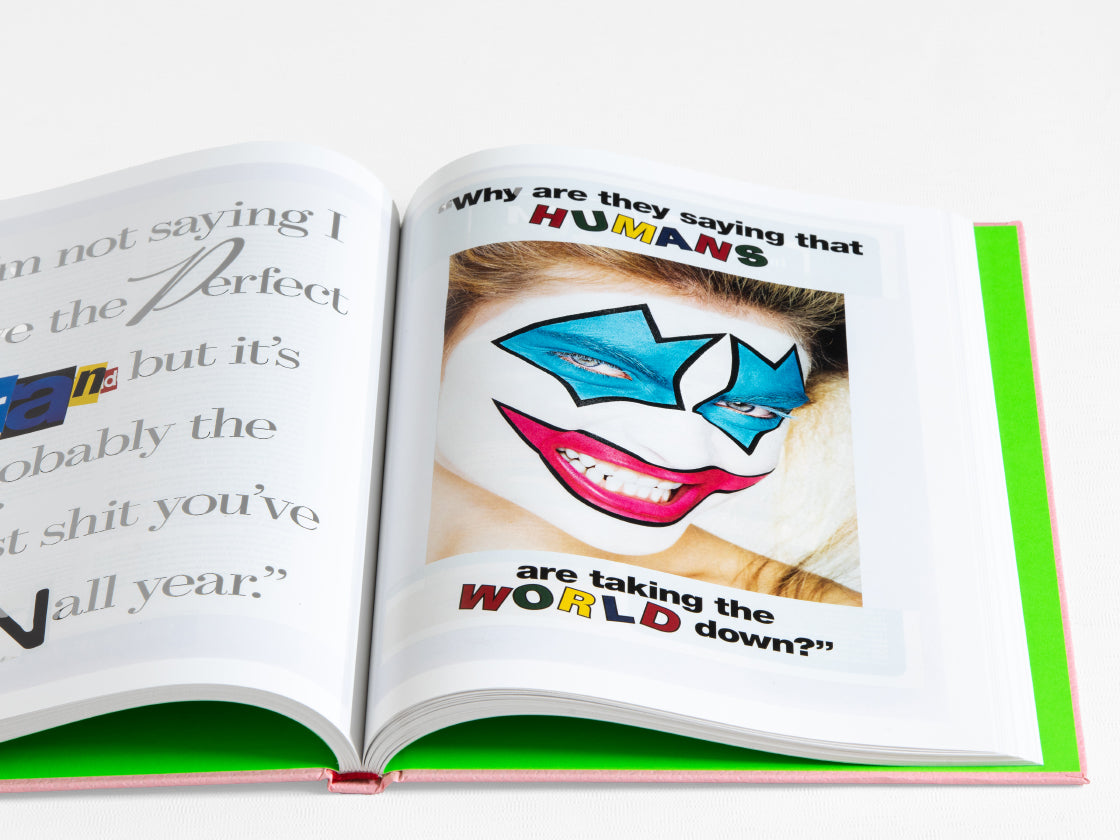 'm not saying I
ve the Perfect
rand but it's
obably the
st shit you've
N all year.”
“Why are they saying that
HUMANS
are taking the
WORLD down?”